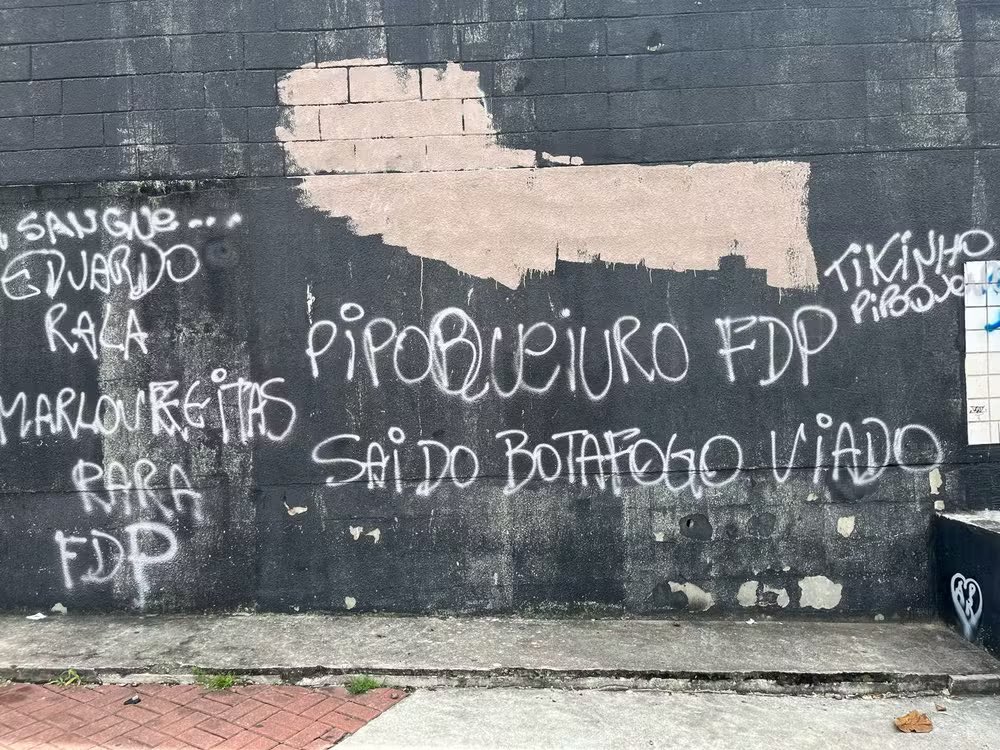 SANGUE...
EDUARDO
RALA
MARLON FREITAS
RARA
FDP
PIPOQUEIURO FDP
SAI DO BOTAFOGO VIADO
TIKINHO